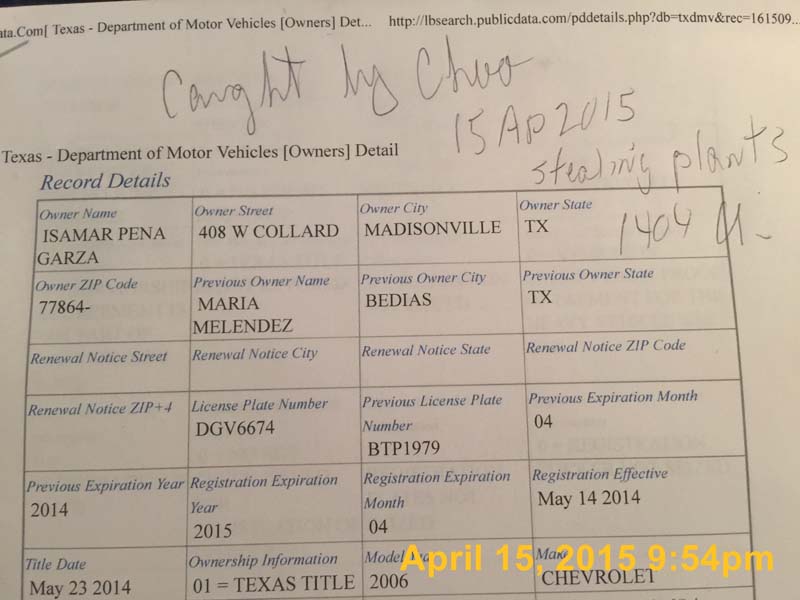 ata.Com[ Texas - Department of Motor Vehicles [Owners] Det... http://lbsearch.publicdata.com/pddetails.php?db=txdmv&rec=161509...
Caught by Chuo
15 AP 2015
Texas - Department of Motor Vehicles [Owners] Detail
stealing plants
Record Details
1404
Owner Name Owner Street Owner City Owner State
ISAMAR PENA 408 W COLLARD MADISONVILLE TX
GARZA
Owner ZIP Code Previous Owner Name Previous Owner City Previous Owner State
77864- MARIA BEDIAS TX
MELENDEZ
Renewal Notice Street Renewal Notice City Renewal Notice State Renewal Notice ZIP Code
Renewal Notice ZIP+4 License Plate Number Previous License Plate Previous Expiration Month
DGV6674 Number 04
BTP1979
Previous Expiration Year Registration Expiration Registration Expiration Registration Effective
2014 Year Month May 14 2014
2015 04
Title Date Ownership Information Model Make
May 23 2014 01 = TEXAS TITLE 2006 CHEVROLET
April 15, 2015 9:54pm